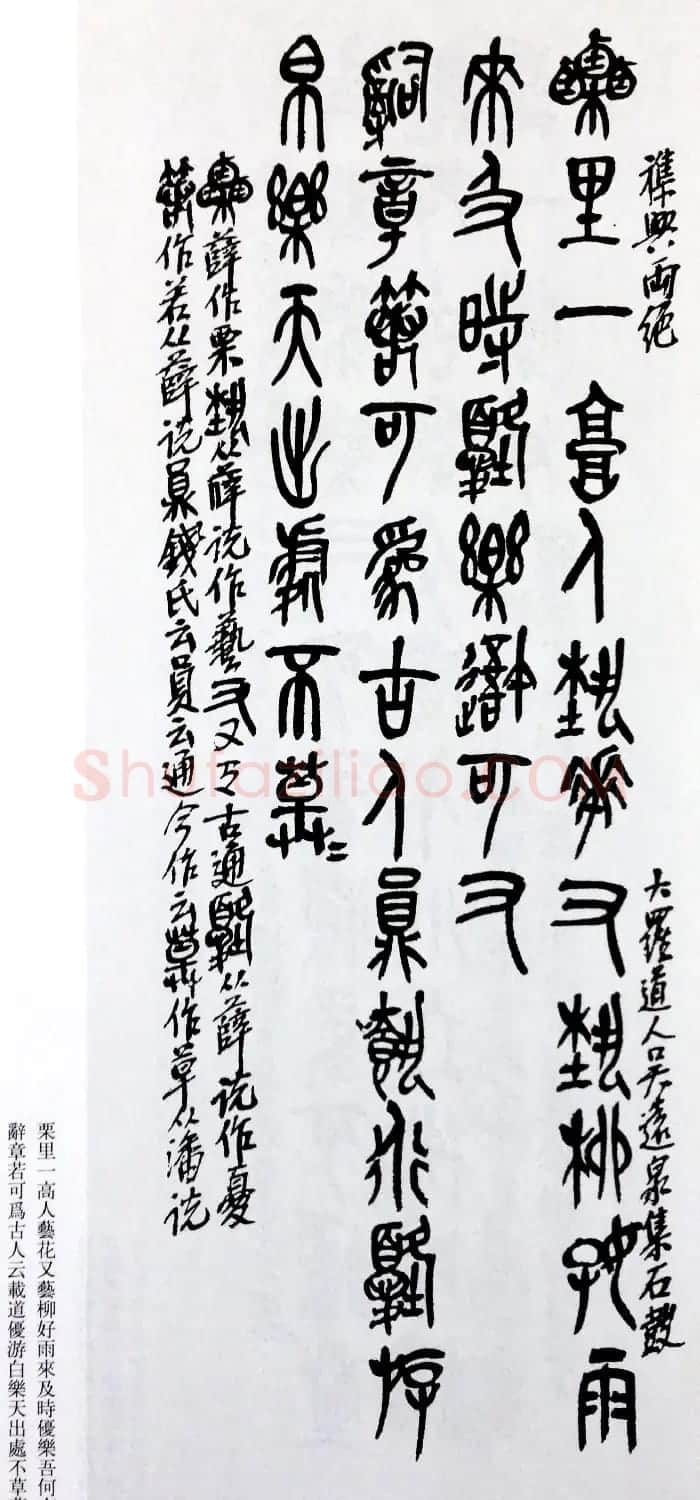 襍興兩絶
大羅道人吳遠泉集石鼓
栗里一高人藝花又藝柳好雨
來及時優樂吾何又
辭章若可爲古人云載道優游
白樂天出處不草=
薛作栗 从薛說作藝 又 古通 从薛說作憂
作若从薛說 錢氏云員云通今作云 作草从潘說
栗里一高人藝花又藝柳好雨來及時優樂吾何
辭章若可爲古人云載道優游白樂天出處不草